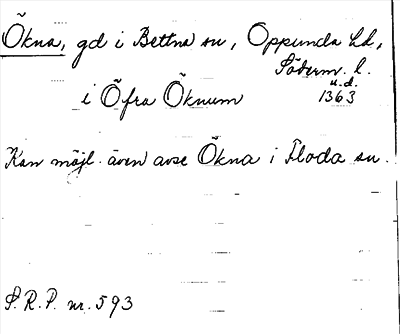 Ökna, gd i Bettna sn, Oppunda hd,
Söderm. l.
u.d.
i Öfra Öknum 1363
Kan möjl. även avse Ökna i Floda sn.
S.R.P. nr. 593